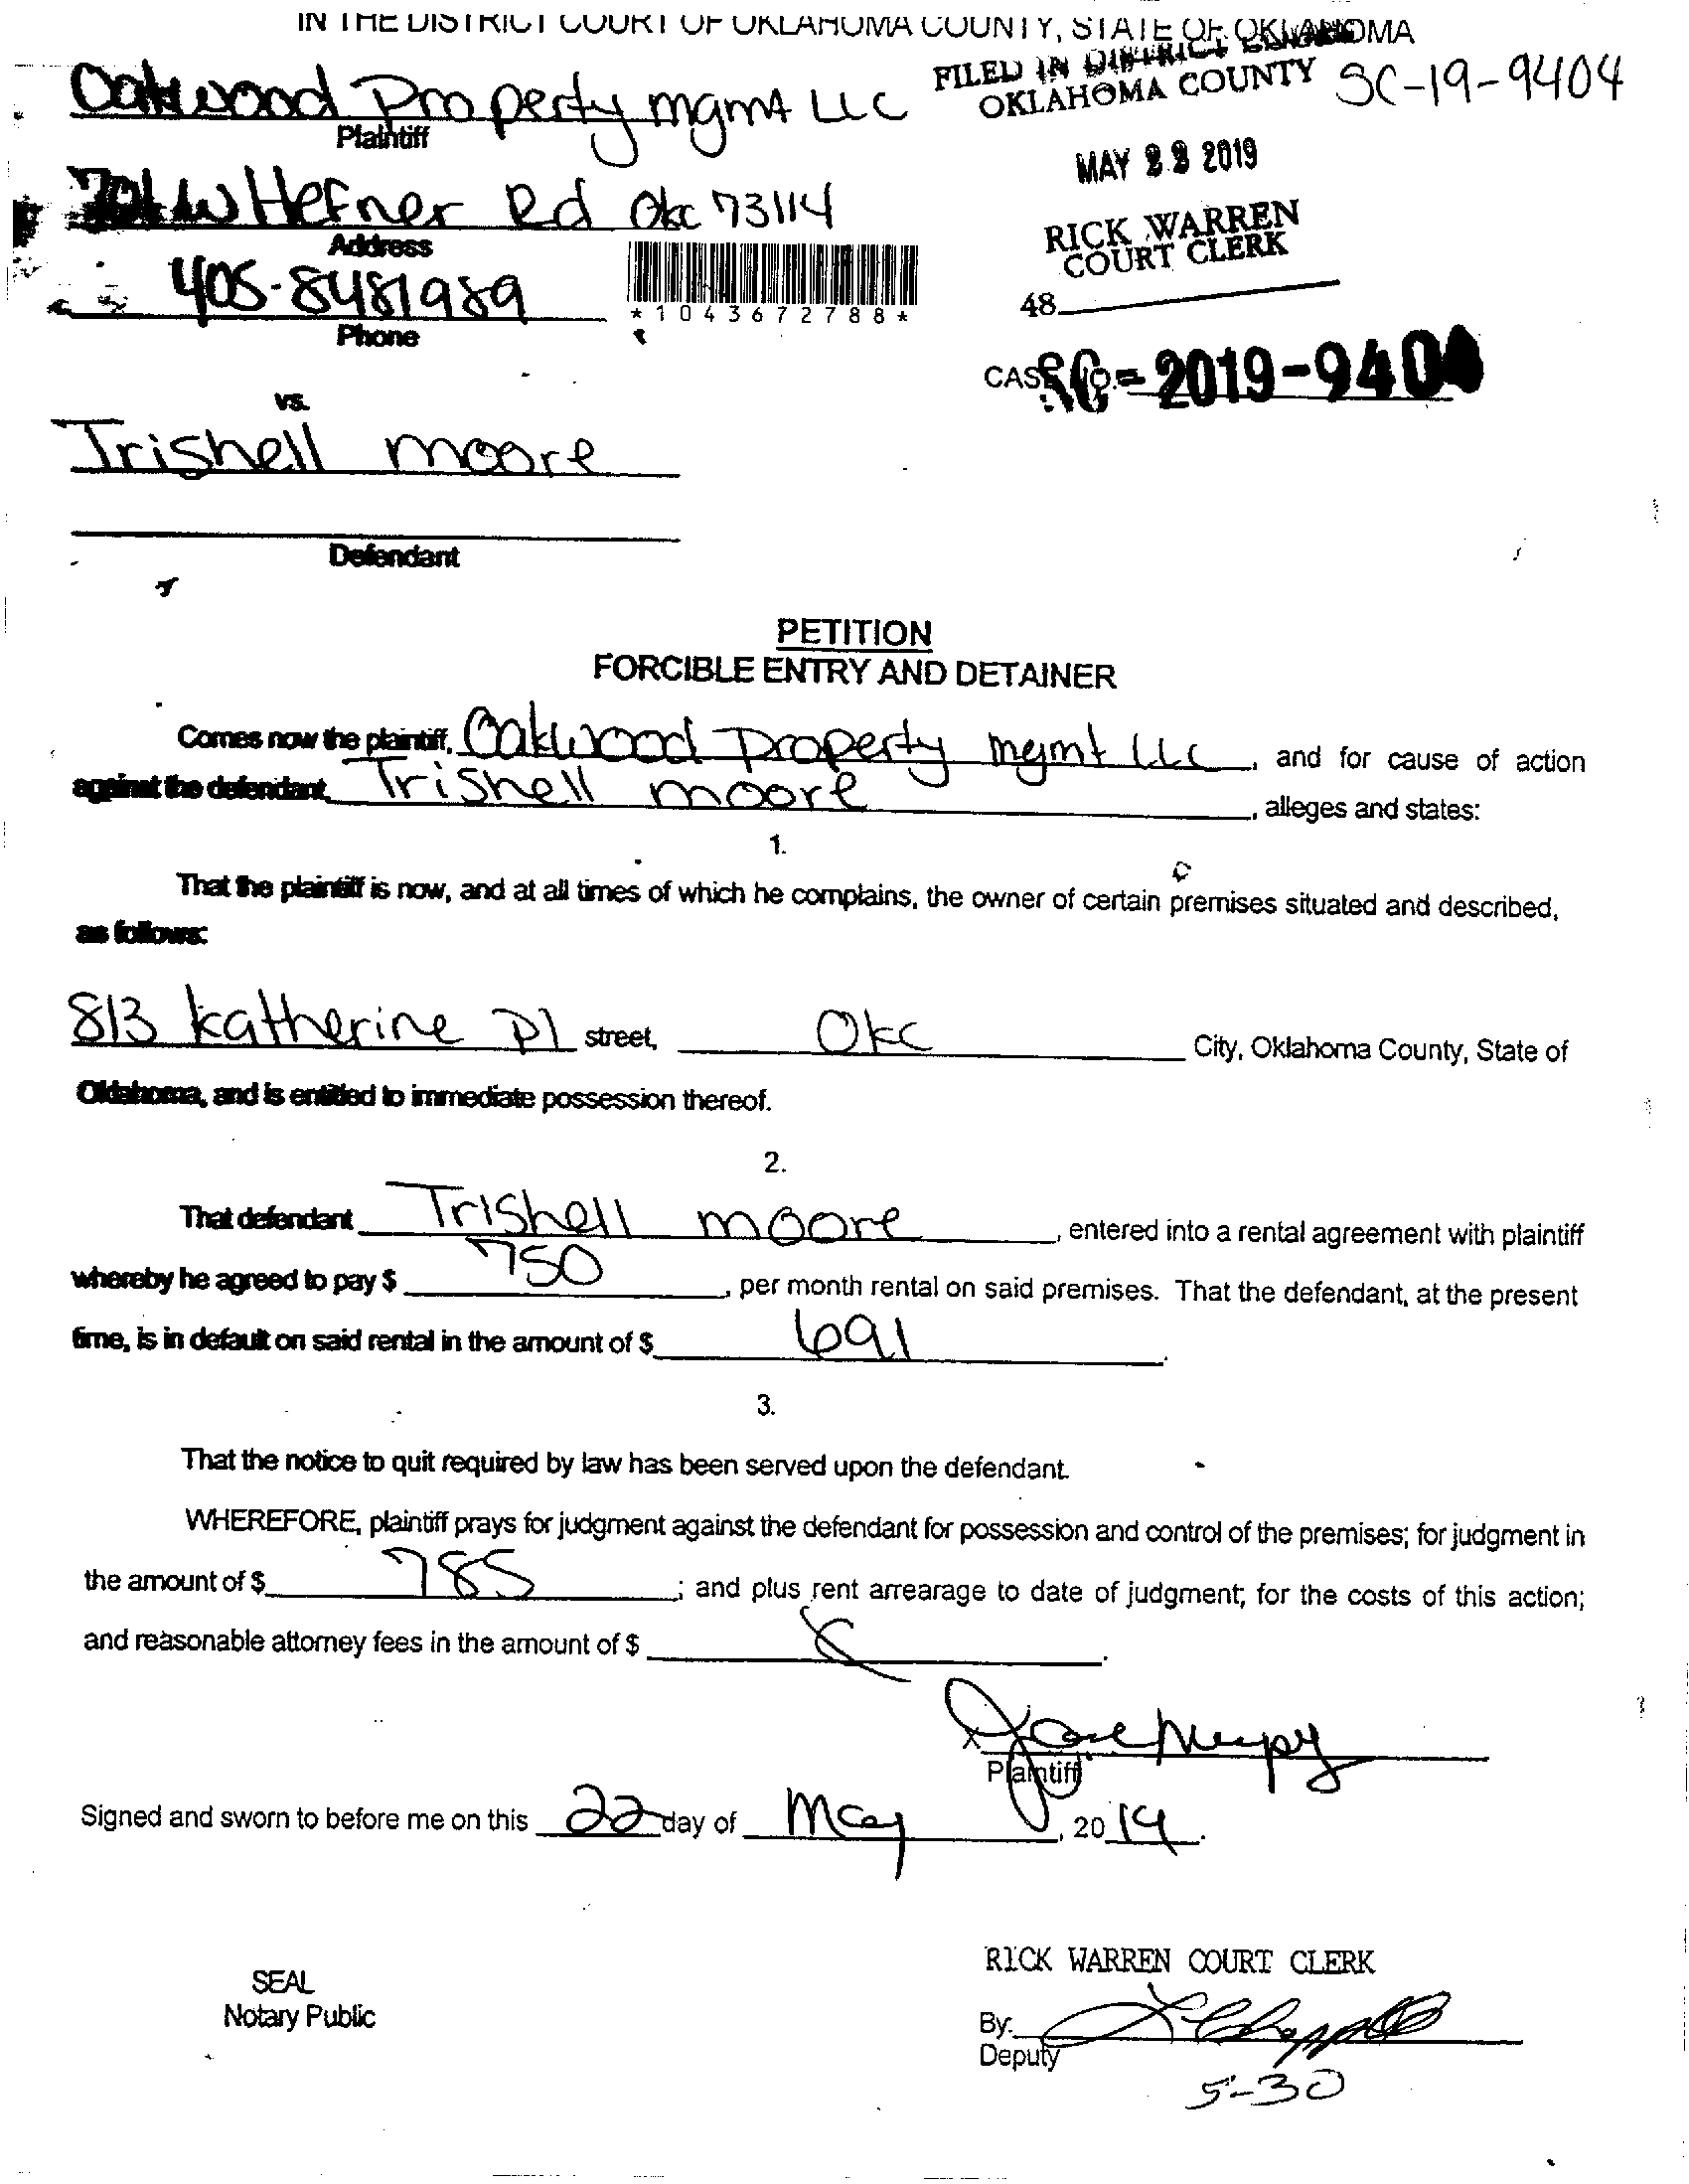 IN THE DISTRICT COURT OF OKLAHOMA COUNTY, STATE OF OKLAHOMA
FILED IN DISTRICT
OKLAHOMA COUNTY SC-19-9404
Oakwood Property mgmt LLC
Plaintiff
MAY 2019
701 W Hefner Rd Okc 73114
Address
RICK WARREN
COURT CLERK
405-8481989
*1043672788*
48
Phone
CASE NO. SC-2019-9404
vs.
Trishell moore
Defendant
PETITION
FORCIBLE ENTRY AND DETAINER
Comes now the plaintiff, Oakwood Property mgmt LLC, and for cause of action
against the defendant, Trishell moore, alleges and states:
1.
That the plaintiff is now, and at all times of which he complains, the owner of certain premises situated and described,
as follows:
813 Katherine Pl street, Okc City, Oklahoma County, State of
Oklahoma, and is entitled to immediate possession thereof.
2.
That defendant Trishell moore, entered into a rental agreement with plaintiff
whereby he agreed to pay $ 750, per month rental on said premises. That the defendant, at the present
time, is in default on said rental in the amount of $ 691.
3.
That the notice to quit required by law has been served upon the defendant.
WHEREFORE, plaintiff prays for judgment against the defendant for possession and control of the premises; for judgment in
the amount of $ 785; and plus rent arrearage to date of judgment; for the costs of this action;
and reasonable attorney fees in the amount of $.
X
Plaintiff
Signed and sworn to before me on this 22 day of May, 2019.
RICK WARREN COURT CLERK
SEAL
Notary Public
By:
Deputy
5-30